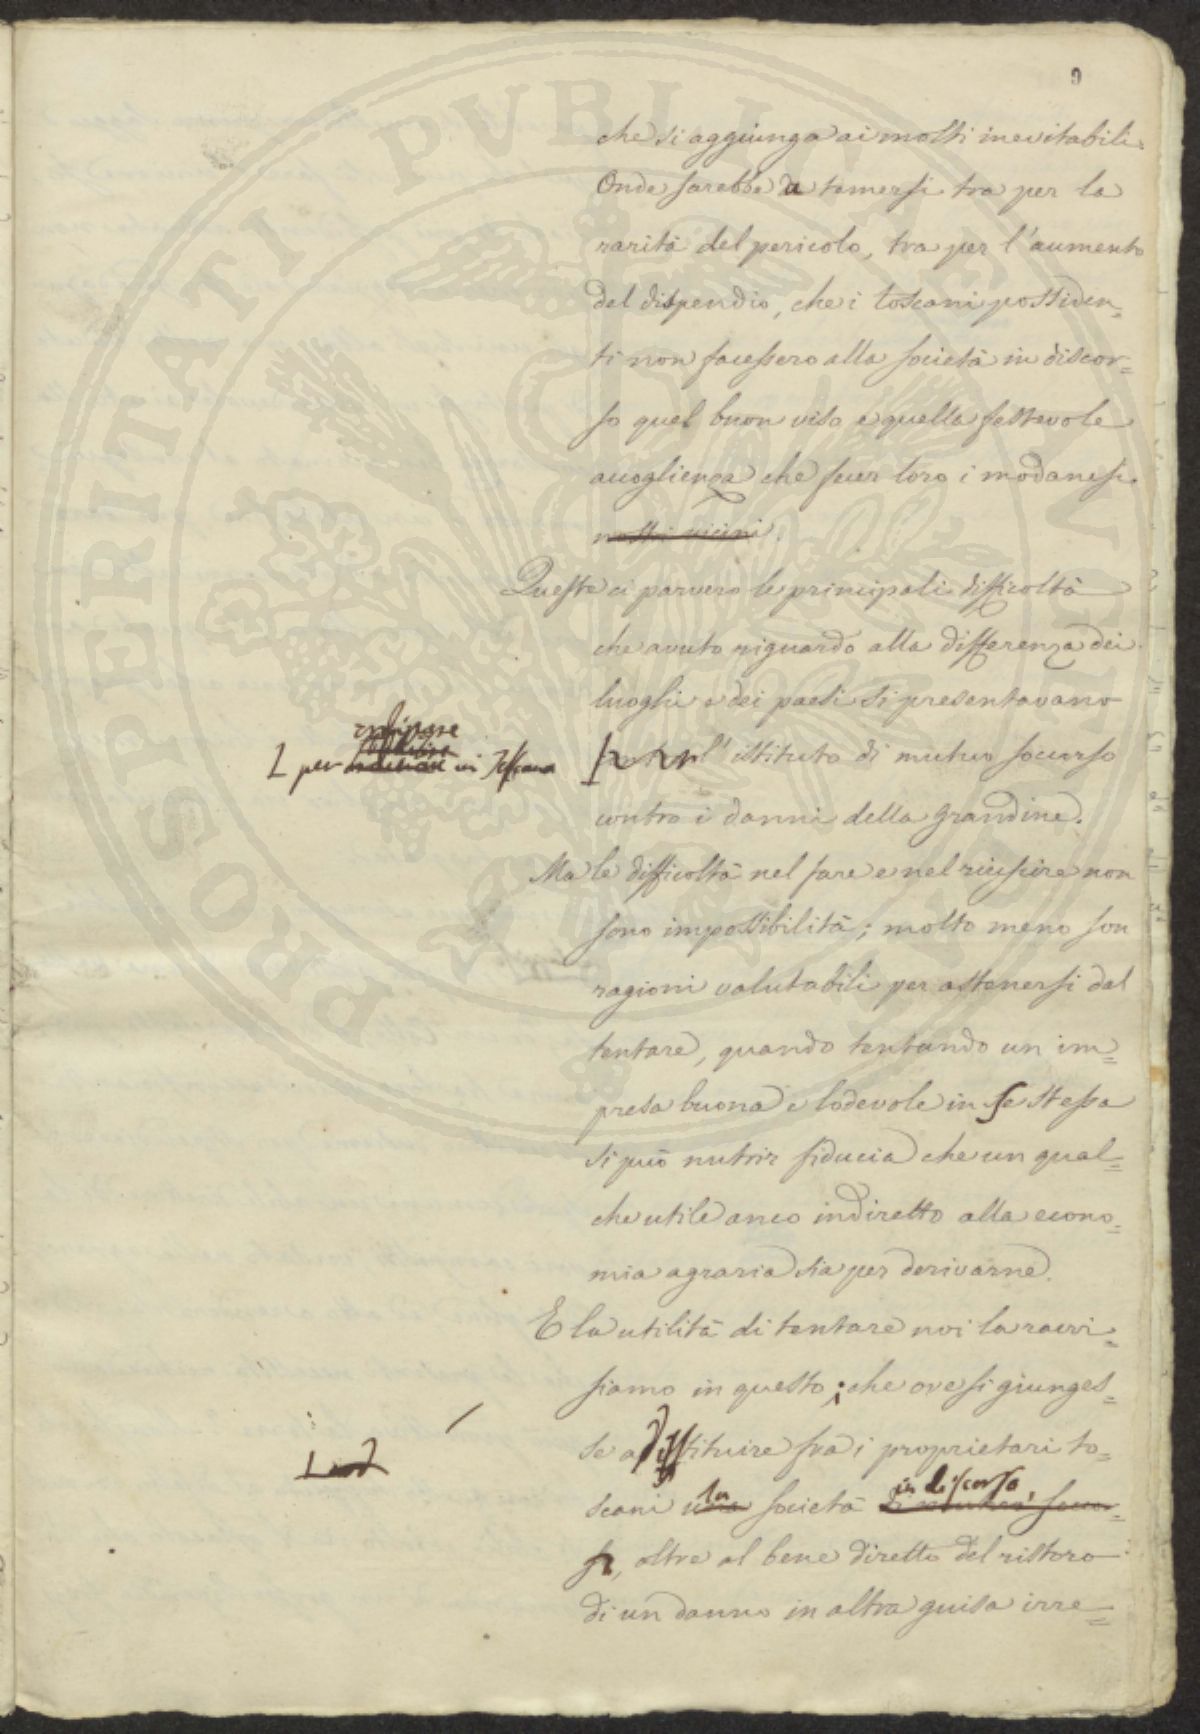 9
che si aggiunga ai molti inevitabili.
Onde sarebbe da temersi tra per la
rarità del pericolo, tra per l'aumento
del dispendio, che i toscani possiden=
ti non facessero alla società in discor=
so quel buon viso e quella festevole
accoglienza che fecer loro i modanesi
nostri vicini.
Queste ci parvero le principali difficoltà
che avuto riguardo alla differenza dei
luoghi e dei paesi si presentavano
per in Toscana
l'istituto di mutuo soccorso
contro i danni della grandine.
Ma le difficoltà nel fare e nel riuscire non
sono impossibilità; molto meno son
ragioni valutabili per astenersi dal
tentare, quando tentando un im=
presa buona e lodevole in se stessa
si può nutrir fiducia che un qual=
che utile anco indiretto alla econo=
mia agraria sia per derivarne.
E la utilità di tentare noi la ravvi=
siamo in questo; che ove si giunges=
se ad istituire fra i proprietari to=
scani una la società di mutuo soccor= in discorso,
so, oltre al bene diretto del ristoro
di un danno in altra guisa irre=
PROSPERITATI PVBLICAE AVGENDAE